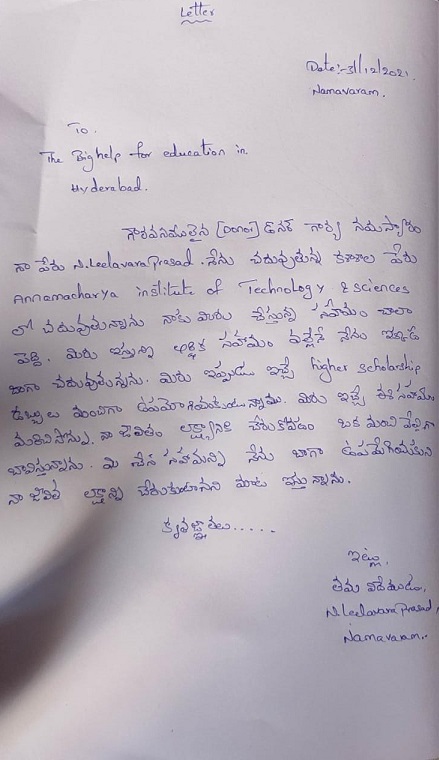 Letter
Date:-31/12/2021.
Namavaram.
To.
The Bighelp for education in
Hyderabad.
గౌరవనీయులైన [Donor] డోనర్ గార్కి నమస్కారం
నా పేరు N.LeelavaraPrasad. నేను చదువుతున్న కళాశాల పేరు
Annamacharya institute of Technology & sciences
లో చదువుతున్నాను నాకు మీరు చేస్తున్న సహాయం చాలా
పెద్ది. మీరు ఇస్తున్న ఆర్థిక సహాయం వల్లేనే నేను ఇక్కడ
బాగా చదువుతున్నను. మీరు ఇప్పుడు ఇచ్చే higher scholarship
డబ్బులు మంచిగా ఉపయోగించుకుంటున్నాము. మీరు ఇచ్చే సహాయం
నా జీవితం లక్ష్యానికి చేరుకోవడం ఒక మంచి
బావిస్తున్నాను. మి చేసిన సహాయన్ని నేను బాగా ఉపయోగించుకుని
నా జీవిత లక్ష్యాన్ని చేరుకుంటానని మాట ఇస్తున్నాను.
కృతజ్ఞతలు.....
ఇట్లు,
తమ విదేయుడు,
N.LeelavaraPrasad,
Namavaram..